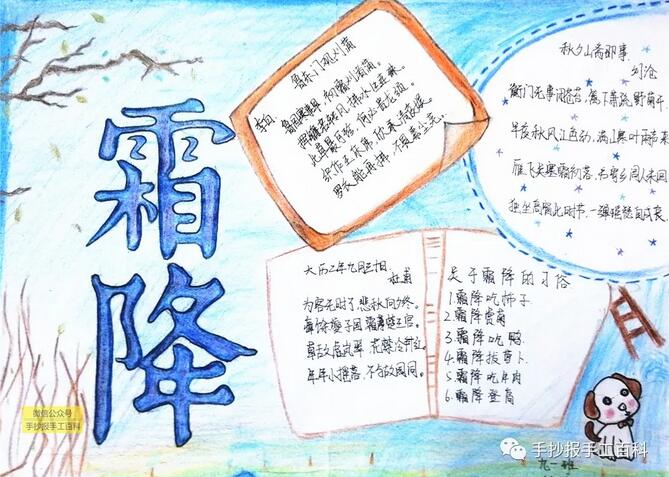 霜降
鲁东门观刈蒲
李白
鲁国寒事早，初霜刈渚蒲。
挥镰若转月，拂水生连珠。
此草最可珍，何必贵龙须。
织作玉床席，欣承清夜娱。
罗衣能再拂，不畏素尘芜。
秋夕山斋即事
刘沧
衡门无事闭苍苔，篱下萧疏野菊
半夜秋风江色动，满山寒叶雨声来
雁飞关塞霜初落，书寄乡闾人未回
独坐高窗此时节，一弹瑶瑟自成哀。
大历二年九月三十日
杜甫
为客无时了，悲秋向夕终。
瘴馀夔子国，霜薄楚王宫。
草敌虚岚翠，花禁冷
年年小摇落，不与故园同。
关于霜降的习俗
1.霜降吃柿子
2.霜降赏菊
3.霜降吃鸭
4.霜降拔萝卜
5.霜降吃牛肉
6.霜降登高
微信公众号
手抄报手工百科
手抄报手工百科
九一班